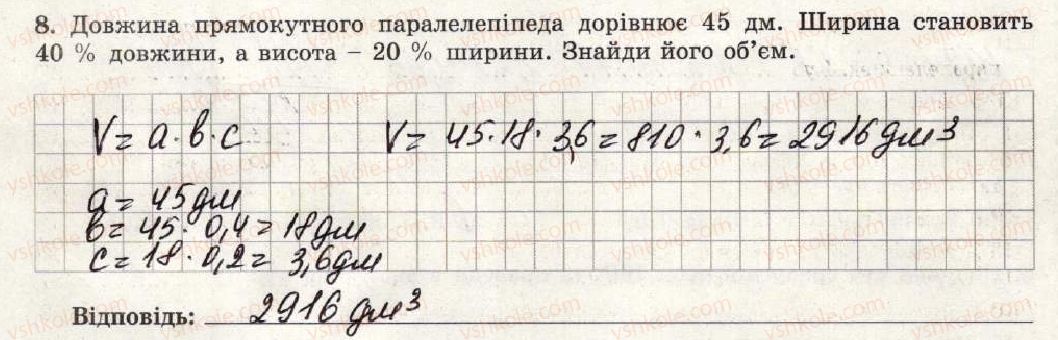 8. Довжина прямокутного паралелепіпеда дорівнює 45 дм. Ширина становить
40 % довжини, а висота – 20 % ширини. Знайди його об’єм.
V = a · b · c
V = 45 · 18 · 3,6 = 810 · 3,6 = 2916 дм³
a = 45 дм
b = 45 · 0,4 = 18 дм
c = 18 · 0,2 = 3,6 дм
Відповідь: 2916 дм³